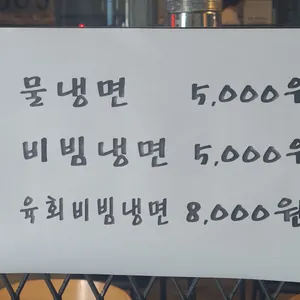 물냉면 5,000원
비빔냉면 5,000원
육회비빔냉면 8,000원